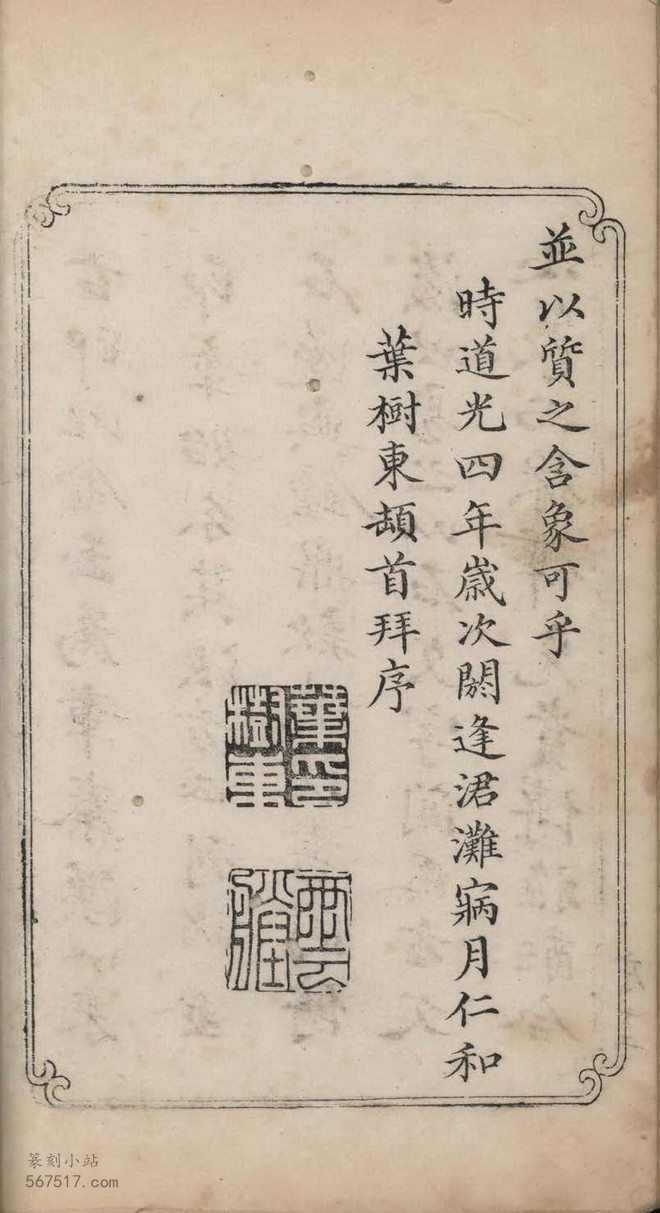 並以質之含象可乎
時道光四年嵗次閼逢涒灘寎月仁和
葉樹東頓首拜序
葉印樹東
篆刻小站
567517.com